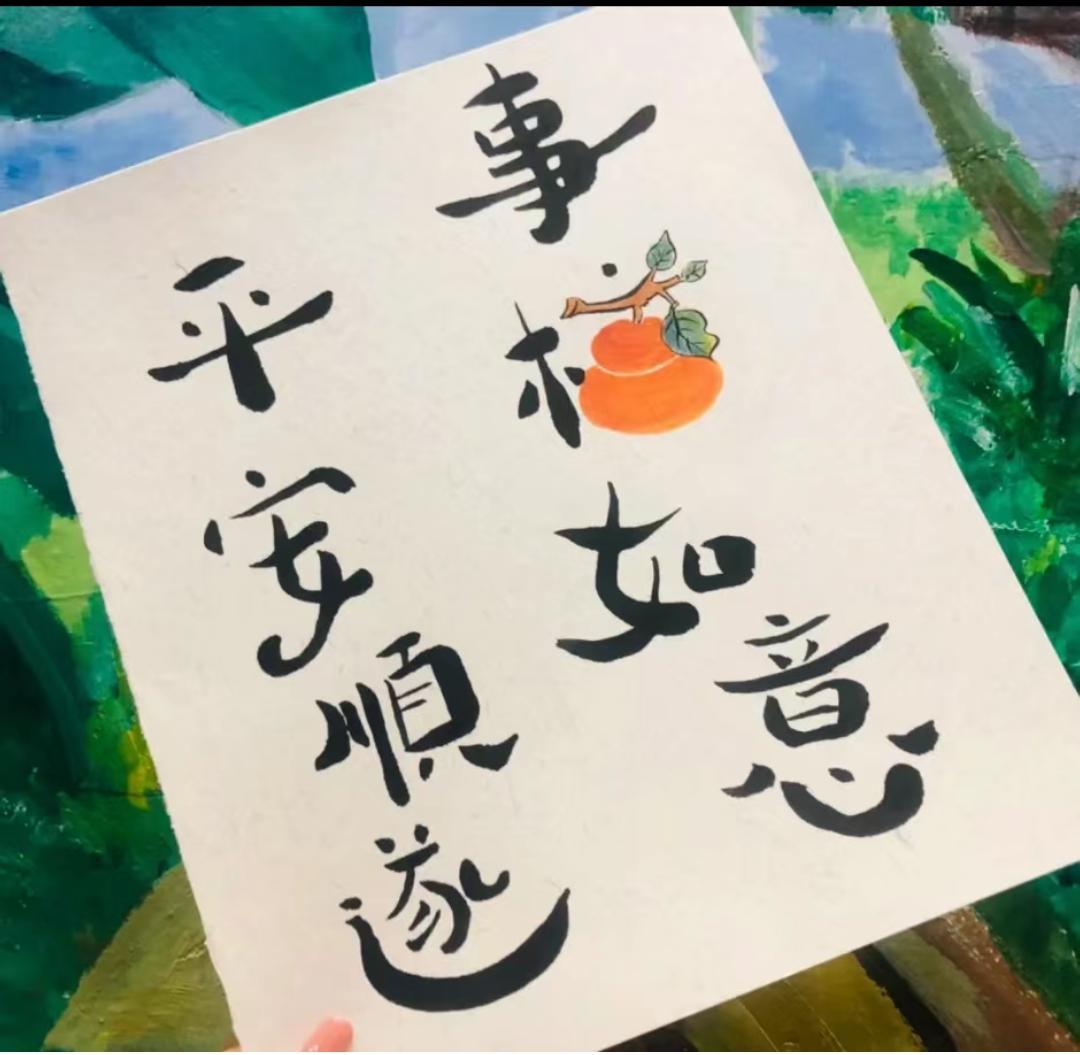 事柿如意
平安順遂